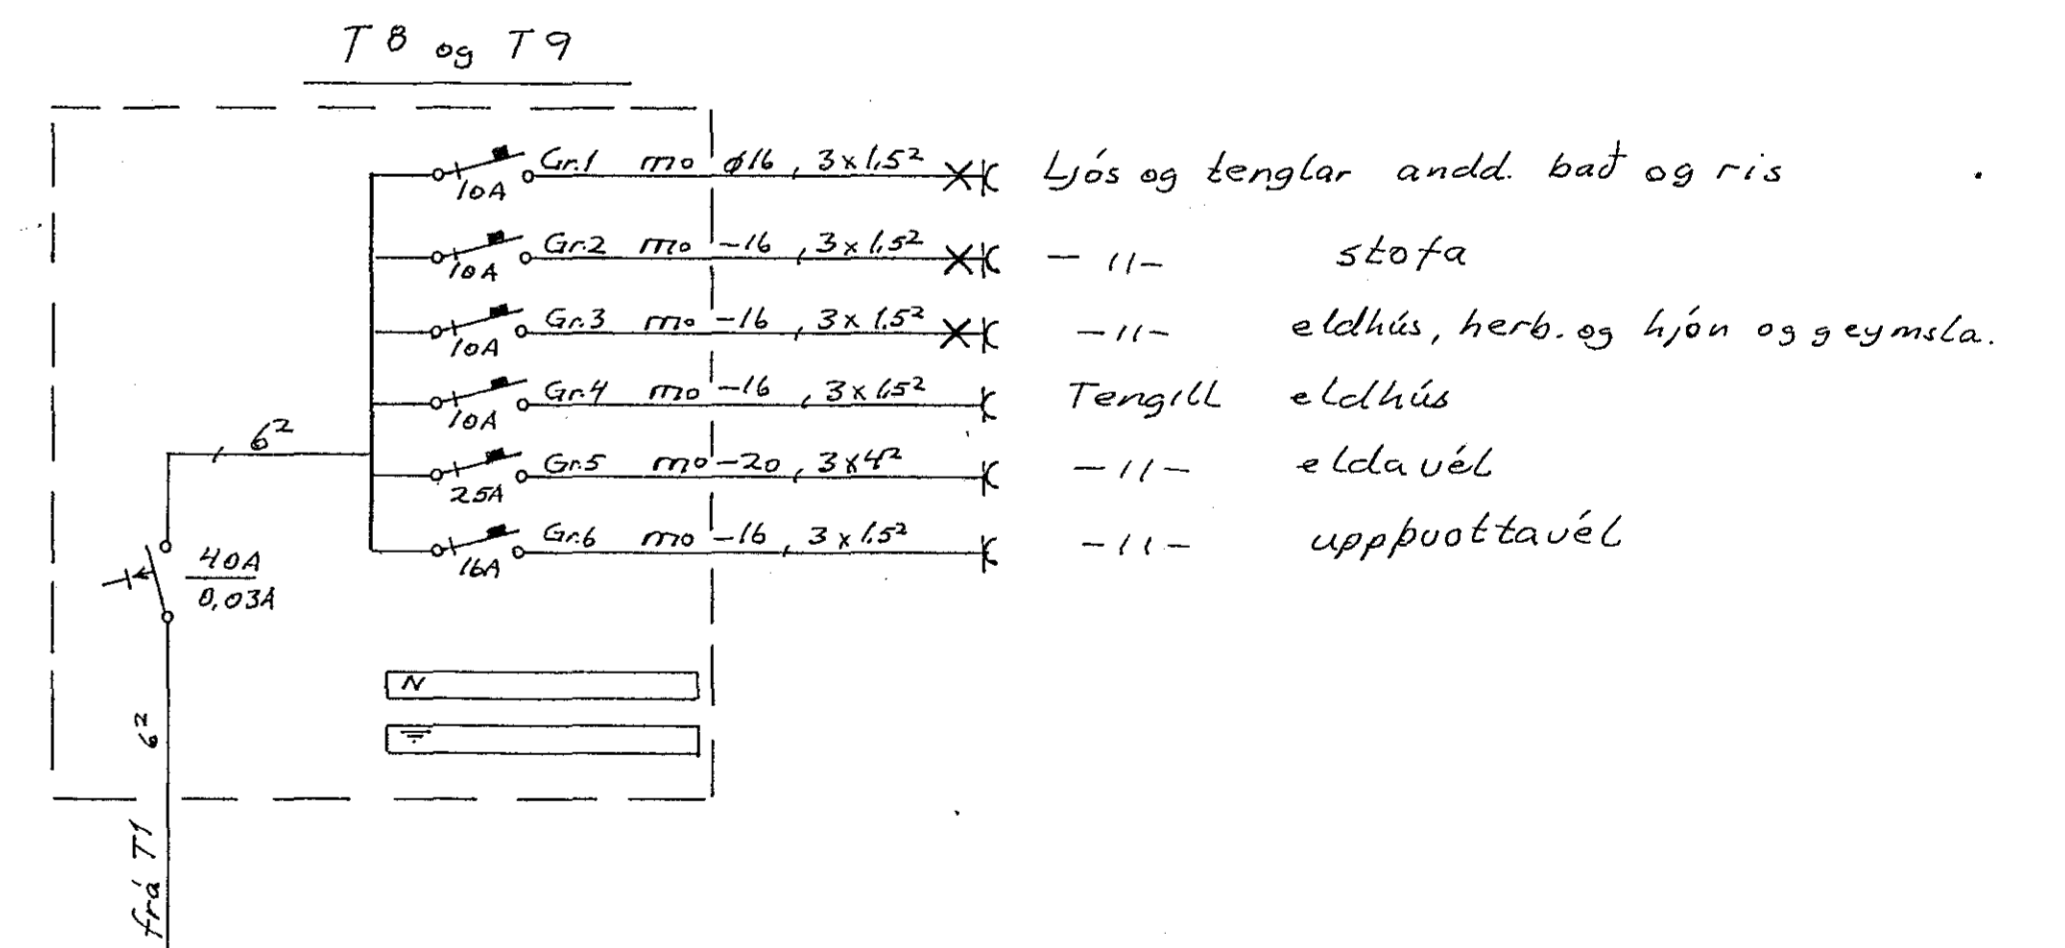 T8 og T9
Gr.1 mo ø16, 3x1,5² Ljós og tenglar andd. bað og ris
10A
Gr.2 mo -16, 3x1,5² -11- stofa
10A
Gr.3 mo -16, 3x1,5² -11- eldhús, herb. og hjón og geymsla.
10A
Gr.4 mo -16, 3x1,5² Tengill eldhús
10A
6²
Gr.5 mo -20, 3x4² -11- eldavél
25A
Gr.6 mo -16, 3x1,5² -11- uppþvottavél
16A
40A
0,03A
N
6²
frá T1